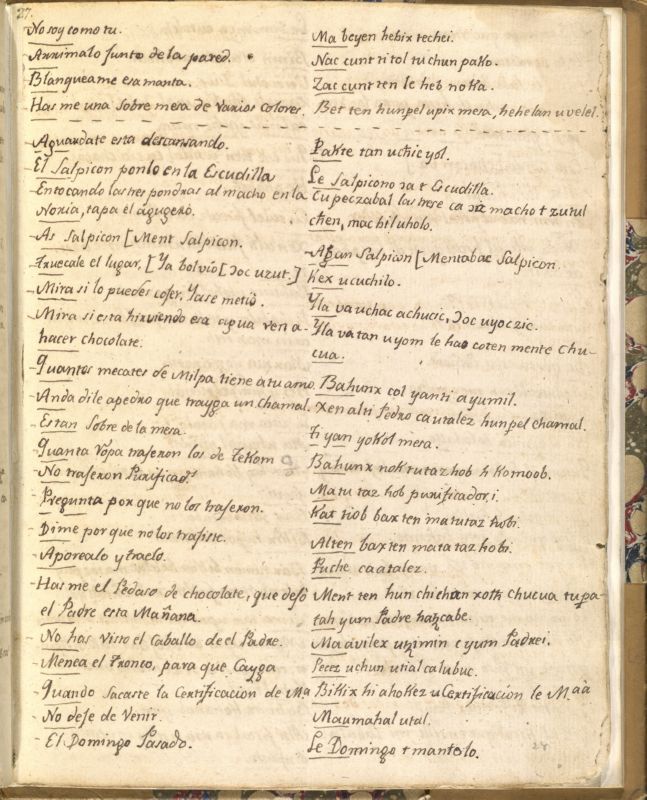 27.
No soy como tu.
Ma beyen hebix techei.
Arrimalo junto de la pared.
Nac cunt ti tol tu chun pako.
Blangueame esa manta.
Zac cunt ten le heb noka.
Has me una sobre mesa de varios colores.
Bet ten hunpel upix mesa, hehelan u velel.
Aguardate esta descansando.
Pakte tan uchic yol.
El Salpicon ponlo en la Escudilla
Le Salpicono ɔa t Escudilla.
Entocando las tres pondras al macho en la
Cu peczabal las trese ca ɔiz macho t zutul
Noria, tapa el agugero.
chen, mac hil uholo.
As Salpicon [Ment Salpicon.
Salpicon [Mentabac Salpicon.
Truecale el lugar, [Ya bolvio [ɔoc uzut.]
Kex ucuchilo.
Mira si lo puedes coser, Ya se metió.
Yla va uchac achucic, ɔoc uyoczic.
Mira si esta hirviendo esa agua ven a
Yla va tan uyom le hao coten mente Chu-
hacer chocolate.
cua.
Quantos mecates de Milpa tiene a tu amo.
Bahunx col yanti ayumil.
Anda dile apedro que trayga un chamal.
Xen alti Pedro ca utalez hunpel chamal.
Estan Sobre de la mesa.
ti yan yokol mesa.
Quanta Ropa traseron los de Tekom
Bahunx nok tutaz hob h Komoob.
No traseron Purificad.s
Matu taz hob purificador, i.
Pregunta por que no los traseron.
Kat tiob baxten matutaz hobi.
Dime por que no los trasiste.
Alten baxten mata taz hobi.
Aporealo y traelo.
Puche ca atalez.
Has me el Pedaso de chocolate, que desó
Ment ten hun chichan xoth chucua tu pa-
el Padre esta Mañana.
tah yum Padre hatzcabe.
No has visto el Caballo de el Padre.
Ma avilex utzimin c yum Padrei.
Menea el Tronco, para que Cayga
Pecez uchun utial ca lubuc.
Quando Sacaste la Certificacion de Ma
Bikix hi ahokez u Certificacion le Maa
No dese de Venir.
Maumahal utal.
El Domingo Pasado.
Le Domingo t mantolo.